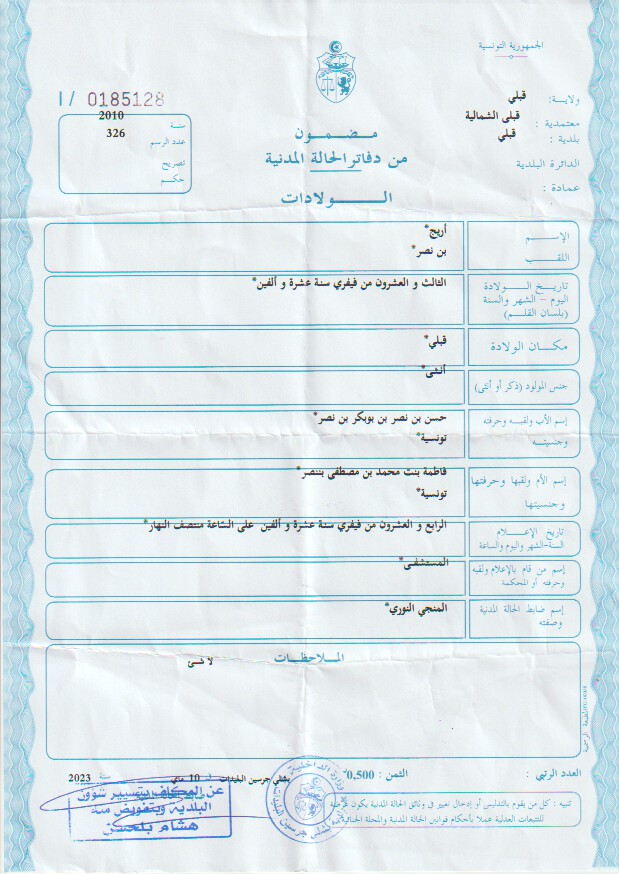 الجمهورية التونسية
I/ 0185128
ولاية: قبلي
معتمدية : قبلي الشمالية
بلدية : قبلي
الدائرة البلدية
عمادة :
سنة 2010
عدد الرسم 326
تصريح
حكم
مضمون
من دفاتر الحالة المدنية
الولادات
الإسم أريج*
اللقب بن نصر*
تاريخ الولادة الثالث و العشرون من فيفري سنة عشرة و ألفين*
اليوم - الشهر والسنة
(بلسان القلم)
مكان الولادة قبلي*
جنس المولود (ذكر أو أنثى) أنثى*
إسم الأب ولقبه وحرفته حسن بن نصر بن بوبكر بن نصر*
وجنسيته تونسية*
إسم الأم ولقبها وحرفتها فاطمة بنت محمد بن مصطفى بننصر*
وجنسيتها تونسية*
تاريخ الإعلام الرابع و العشرون من فيفري سنة عشرة و ألفين على السّاعة منتصف النهار*
السنة-الشهر واليوم والساعة
إسم من قام بالإعلام ولقبه المستشفى*
وحرفته أو المحكمة
إسم ضابط الحالة المدنية المنجي النوري*
وصفته
الملاحظات
لا شئ
العدد الرتبي :
الثمن : 0,500
بشلي جرسين البليدات في 10 ماي سنة 2023
تنبيه : كل من يقوم بالتدليس أو إدخال تغيير في وثائق الحالة المدنية يكون عرضة
للتتبعات العدلية عملا بأحكام قوانين الحالة المدنية والمجلة الجنائية
وزارة الداخلية
بشلي جرسين البليدات
عن المكلف بتسيير شؤون
البلدية وبتفويض منه
هشام بلحسن